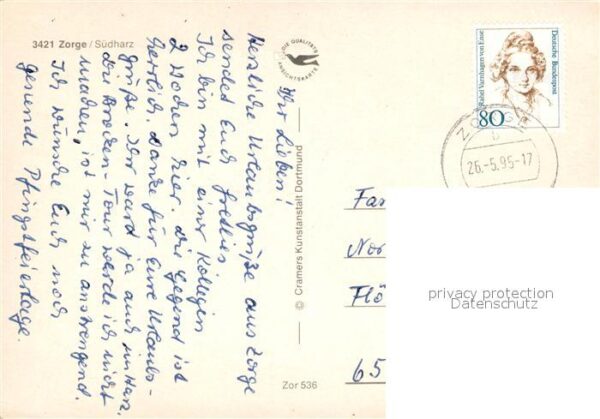 3421 Zorge / Südharz
Ihr Lieben!
Herzliche Urlaubsgrüße aus Zorge
sendet Euch
Ich bin mit einer Kollegin
2 Wochen hier. Die Gegend ist
herrlich. Danke für Eure Urlaubs-
grüße. Ihr ward ja auch im Harz.
die Brocken-Tour werde ich nicht
machen, ist mir zu anstrengend.
Ich wünsche Euch noch
gesunde Pfingstfeiertage.
DIE QUALITÄTS
ANSICHTSKARTE
© Cramers Kunstanstalt Dortmund
Zor 536
Deutsche Bundespost
Rahel Varnhagen von Ense
80
ZORGE
b
26.-5.95-17
Fa
Nor
Flö
65
privacy protection
Datenschutz